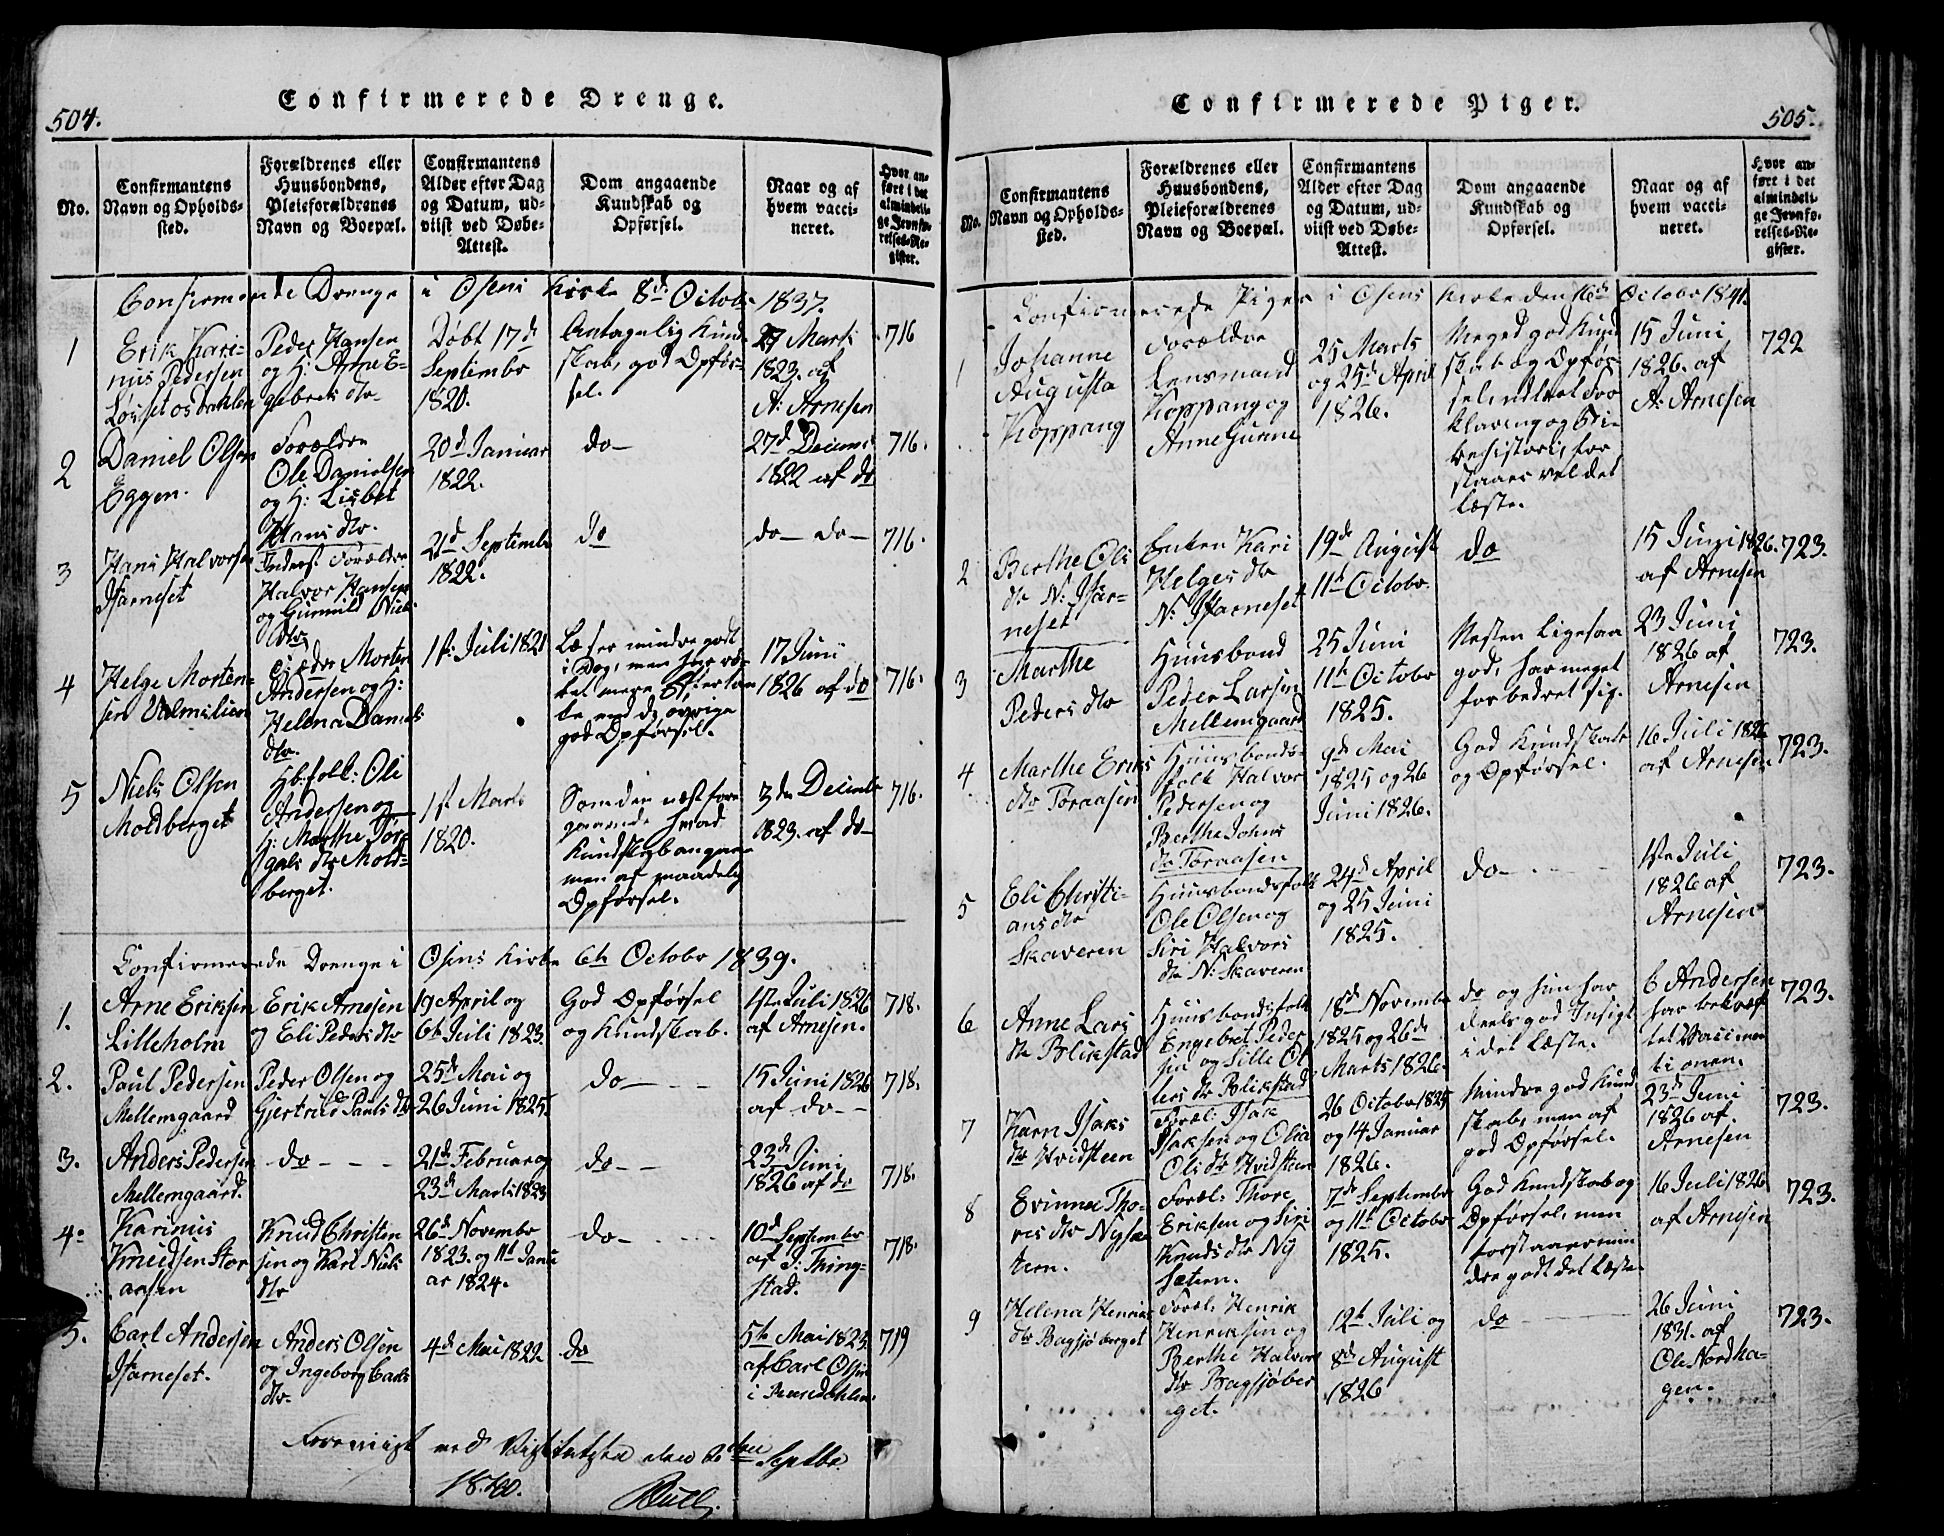 504.
Confirmerede Drenge.
No.
Confirmantens
Navn og Opholds-
sted.
Forældrenes eller
Huusbondens,
Pleieforældrenes
Navn og Boepæl.
Confirmantens
Alder efter Dag
og Datum, ud-
viist ved Døbe-
Attest.
Dom angaaende
Kundskab og
Opførsel.
Naar og af
hvem vacci-
neret.
Hvor an-
ført i det
almindeli-
ge Jevnfø-
relses-Re-
gister.
Confirmerede Drenge i Osens Kirke 8de Octobr 1837.
1
Erik Kari-
nus Pedersen
Peder Hansen
og H: Anne E-
gebreks dtr
Døbt 17de
Septembr
1820.
Antagelig Kund-
skab, god Opfør-
sel.
27 Marts
1823. af
A: Arnesen
716
2
Daniel Olsen
Eggen.
Forældre
Ole Danielsen
og H: Lisbet
Hans dtr.
20de Januar
1822.
do
27de Decemb
1822 af do
716.
3
Hans Halvorsen
Farneset
Inderst Forældre
Halvor Hansen
og Gunnild Niels
dtr
21de Septembr
1822.
do
do do
716.
4
Helge Morten-
sen Ulvmilien
Morten
Andersen og H:
Helena Daniels
dtr.
1ste Juli 1821
Læser mindre godt
i Bog, men har
mere Eftertan
ke end de øvrige
god Opførsel.
17 Junii
1826 af do
716.
5
Niels Olsen
Moldberget
Hb:folk: Ole
Andersen og
H: Marthe Tor-
gals dtr Mold-
berget.
1st Marts
1820.
Som den næst fore
gaaende hvad
Kundskab angaar
men af maadelig
Opførsel.
3de Decembr
1823. af do
716.
Confirmerede Drenge i Osens Kirke 6te Octobr 1839.
1.
Arne Eriksen
Lilleholm
Erik Arnesen
og Eli Peders dtr
19 April og
6te Juli 1823.
God Opførsel
og Kundskab.
1ste Juli 1826
af Arnesen.
718.
2.
Paul Pedersen
Mellemgaard
Peder Olsen og
Gjertrud Pauls dtr
25de Mai og
26 Juni 1825.
do
15 Juni 1826
af do
718.
3.
Anders Pedersen
Mellemgaard.
do
21de Februar og
23de Marts 1823
do
23de Juni
1826 af do
718.
4.
Karinus
Knudsen Stor
aasen
Knud Christen
sen og Kari Niels
dtr
26de Novembr
1823. og 11te Janu
ar 1824.
do
10de Septembr
af S: Thing-
stad.
718.
5.
Carl Andersen
Farneset.
Anders Olsen
og Ingeborg Carls
dtr.
4de Mai 1822
do
5te Mai 1823.
af Carl Olsen
719
Septbr
1840.
505.
Confirmerede Piger.
No.
Confirmantens
Navn og Opholds-
sted.
Forældrenes eller
Huusbondens,
Pleieforældrenes
Navn og Boepæl.
Confirmantens
Alder efter Dag
og Datum, ud-
viist ved Døbe-
Attest.
Dom angaaende
Kundskab og
Opførsel.
Naar og af
hvem vacci-
neret.
Hvor an-
ført i det
almindeli-
ge Jevnfø-
relses-Re-
gister.
Confirmerede Piger i Osens Kirke den 16de Octobr 1841.
1
Johanne
Augusta
Koppang
Forældre
Lensmand
Koppang og
Anne Gurine
25 Marts
og 25de April
1826.
Meged god Kund
skab og Opfør
sel, udlært For
klaring og Bi-
belhistorie, for
staaer vel det
læste.
15 Juni
1826. af
A: Arnesen
722
2
Berthe Ols
dtr N: Far-
neset
Enken Kari
Helges dtr
N: Farneset
19de August
11te Octobr.
do
15 Juni 1826.
af Arnesen
723.
3
Marthe
Peders dtr
Huusbond
Peder Larsen
Mellemgaard
25 Juni
11te Octobr
1825.
Nesten ligesaa
god, har meget
forbedret sig.
23 Juni
1826 af
Arnesen
723.
4.
Marthe Eriks
dtr Toraasen
Huusbonds-
folk Halvor
Pedersen og
Berthe Johns
dtr Toraasen
9de Mai
1825 og 26
Juni 1826.
God Kundskab
og Opførsel.
16 Juli 1826
af Arnesen
723.
5
Eli Christi-
ans dtr
Skaveren
Huusbondsfolk
Ole Olsen og
Siri Halvors
dtr N: Skaveren
24de April
og 25 Juni
1825.
do
1ste Juli
1826 af
Arnesen
723.
6
Anne Lars
dtr Blikstad
Huusbondsfolk
Engebret Peder
sen og Sille Ol
lers dtr Blikstad
18de Novembr
1825 og 26de
Marts 1826.
do og hun har
deels god Insigt
i det læste.
C Andersen
har bekræf
tet Vaccina
tionen.
723.
7
Karn Isaks
dtr Hvidsteen
Foræl: Isak
Isaksen og Olia
Ols dtr Hvidsteen
26 Octobr 1825
og 14 Januar
1826.
Mindre god Kund
skab, men af
god Opførsel.
23de Juni
1826 af
Arnesen
723.
8
Evinna Tho-
res dtr Nysæ
tern.
Foræl: Thore
Eriksen og Siri
Knuds dtr Ny
sætern.
7de Septembr
og 11te Octobr
1825.
God Kundskab og
Opførsel, men
forstaaer min
dre godt det læste.
16 Juli 1826
af Arnesen
723.
9
Helena Henriks
dtr Bagsjøberget
Foræl: Henrik
Henriksen og
Berthe Halvors
dtr Bagsjøber
get.
12te Juli og
8de August
1826
do
26 Juni
1831. af
Ole Nordha-
gen.
723.